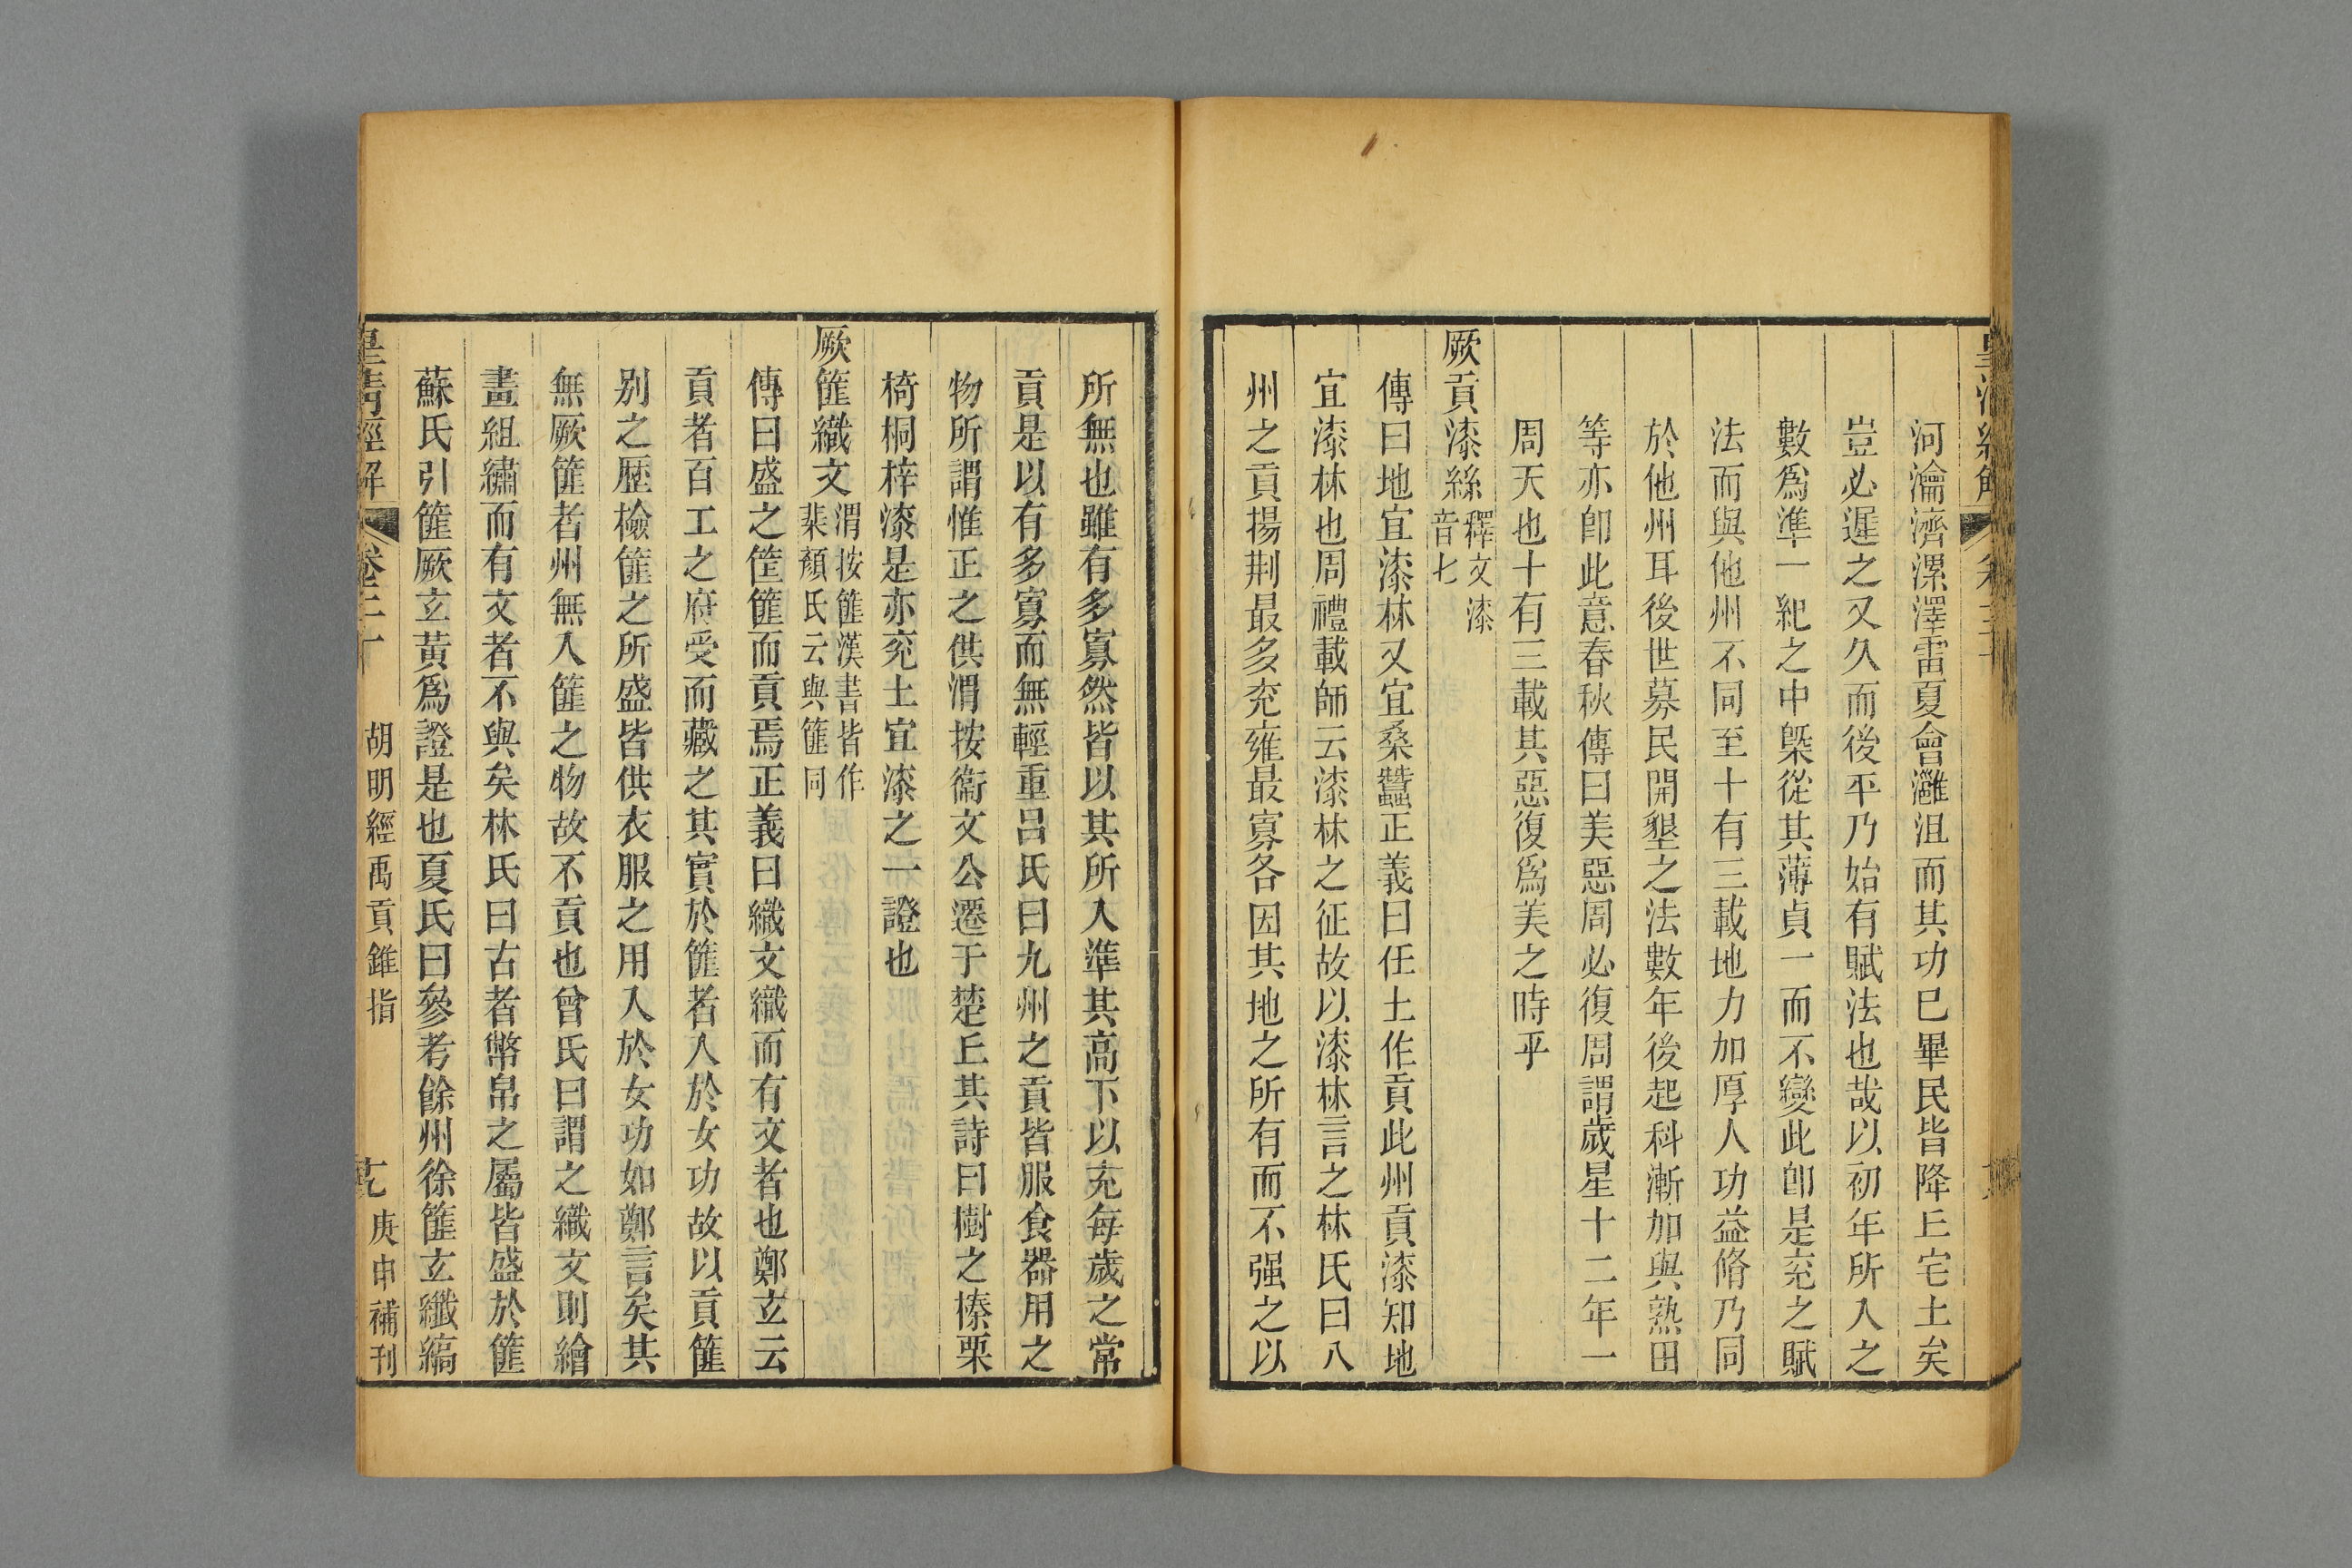 河瀹濟漯澤雷夏會灉沮而其功已畢民皆降丘宅土矣
豈必遲之又久而後平乃始有賦法也哉以初年所入之
數爲準一紀之中槩從其薄貞一而不變此卽是兖之賦
法而與他州不同至十有三載地力加厚人功益脩乃同
於他州耳後世募民開墾之法數年後起科漸加與熟田
等亦卽此意春秋傳曰美惡周必復周謂歲星十二年一
周天也十有三載其惡復爲美之時乎
厥貢漆絲釋文漆音七
傳曰地宜漆林又宜桑蠶正義曰任土作貢此州貢漆知地
宜漆林也周禮載師云漆林之征故以漆林言之林氏曰八
州之貢揚荆最多兖雍最寡各因其地之所有而不强之以
所無也雖有多寡然皆以其所入準其高下以充每歲之常
貢是以有多寡而無輕重呂氏曰九州之貢皆服食器用之
物所謂惟正之供渭按衞文公遷于楚丘其詩曰樹之榛栗
椅桐梓漆是亦兖土宜漆之一證也
厥篚織文渭按篚漢書皆作棐顏氏云與篚同
傳曰盛之筐篚而貢焉正義曰織文織而有文者也鄭玄云
貢者百工之府受而藏之其實於篚者入於女功故以貢篚
别之歷檢篚之所盛皆供衣服之用入於女功如鄭言矣其
無厥篚者州無入篚之物故不貢也曾氏曰謂之織文則繪
畫組繡而有文者不與矣林氏曰古者幣帛之屬皆盛於篚
蘇氏引篚厥玄黃爲證是也夏氏曰參考餘州徐篚玄纖縞
皇清經解 卷三十 胡明經禹貢錐指 庚申補刊